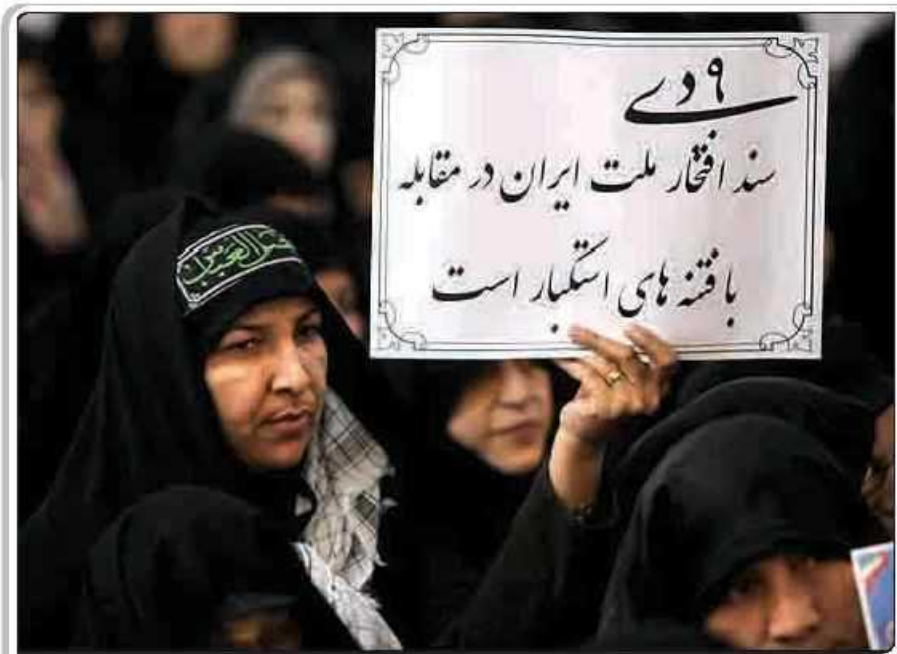 ۹ دی
سند افتخار ملت ایران در مقابله
با فتنه های استکبار است